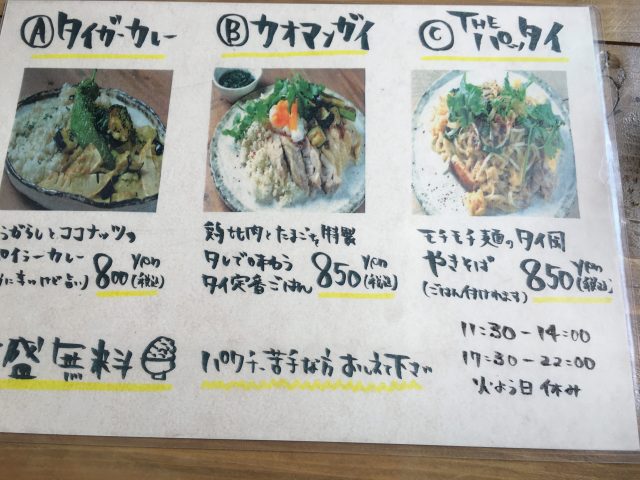 Ⓐタイガーカレー
Ⓑカオマンガイ
Ⓒ THE パッタイ
うがらしとココナッツの
イラーカレー
に辛いけど旨い)
800 yen(税込)
鶏ムネ肉とたまごを特製
タレで味わう
タイ定番ごはん
850 yen(税込)
モチモチ麺のタイ風
やきそば
(ごはん付けれます)
850 yen(税込)
盛無料
パクチー苦手な方おしえて下さい
11:30-14:00
17:30-22:00
火よう日休み